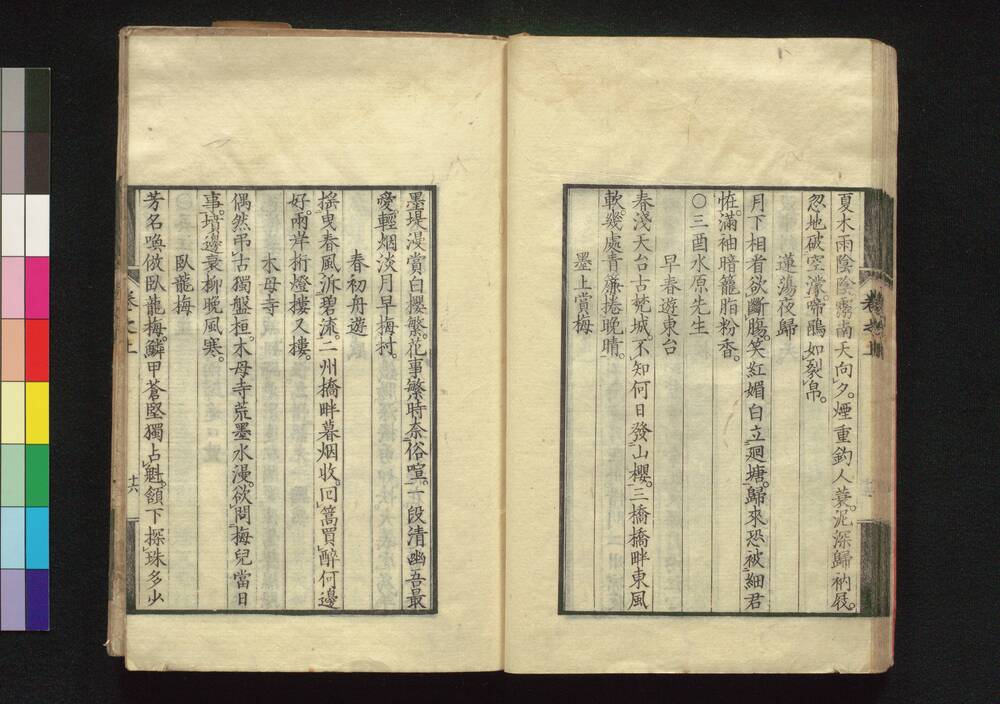 夏木雨陰陰霧南天向夕。煙重釣人蓑。泥深歸衲屐。
忽地破空濛啼鵑如裂帛。
蓮蕩夜歸
月下相看欲斷腸。笑紅媚白立廻塘。歸來恐被細君
怪。滿袖暗籠脂粉香。
〇三酉水原先生
早春遊東台
春淺天台古梵城。不知何日發山櫻。三橋橋畔東風
軟。幾處青簾捲晚晴。
墨上賞梅
墨堤漫賞白櫻繁。花事繁時奈俗喧。一段清幽吾最
愛。輕烟淡月早梅村。
春初舟遊
搖曳春風泝碧流。二州橋畔暮烟收。回篙買醉何邊
好。兩岸桁燈樓又樓。
木母寺
偶然弔古獨盤桓。木母寺荒墨水漫。欲問梅兒當日
事。墳邊衰柳晚風寒。
臥龍梅
芳名喚倣臥龍梅。鱗甲蒼堅獨占魁。頷下探珠多少
卷之上
十六